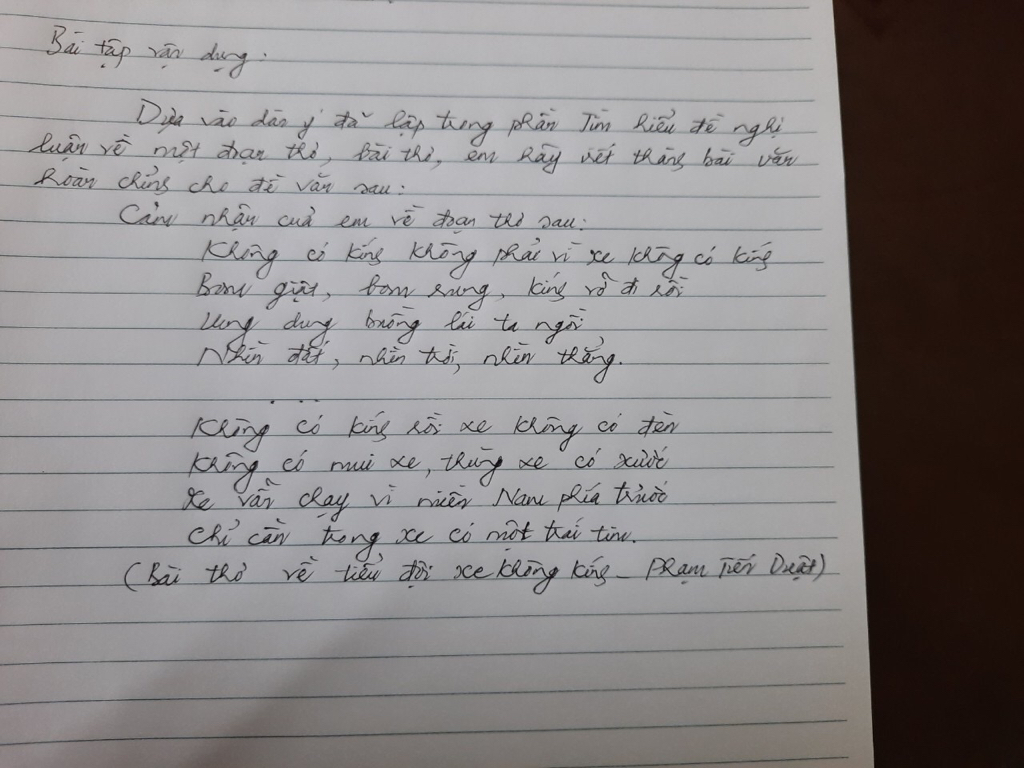 Bài tập vận dụng:
Dựa vào dàn ý đã lập trong phần Tìm hiểu đề nghị
luận về một đoạn thơ, bài thơ, em hãy viết thàng bài văn
hoàn chỉng cho đề văn sau:
Cảm nhận cuả em về đoạn thơ sau:
Không có kíng không phải vì xe không có kíng
Bom giật, bom rung, kíng vỡ đi rồi
Ung dung buồng lái ta ngồi
Nhìn đất, nhìn trời, nhìn thẳng.
...
Không có kíng rồi xe không có đèn
Không có mui xe, thùng xe có xước
Xe vẫn chạy vì miền Nam phía trước
Chỉ cần trong xe có một trái tim.
(Bài thơ về tiểu đội xe không kíng - Phạm Tiến Duật)